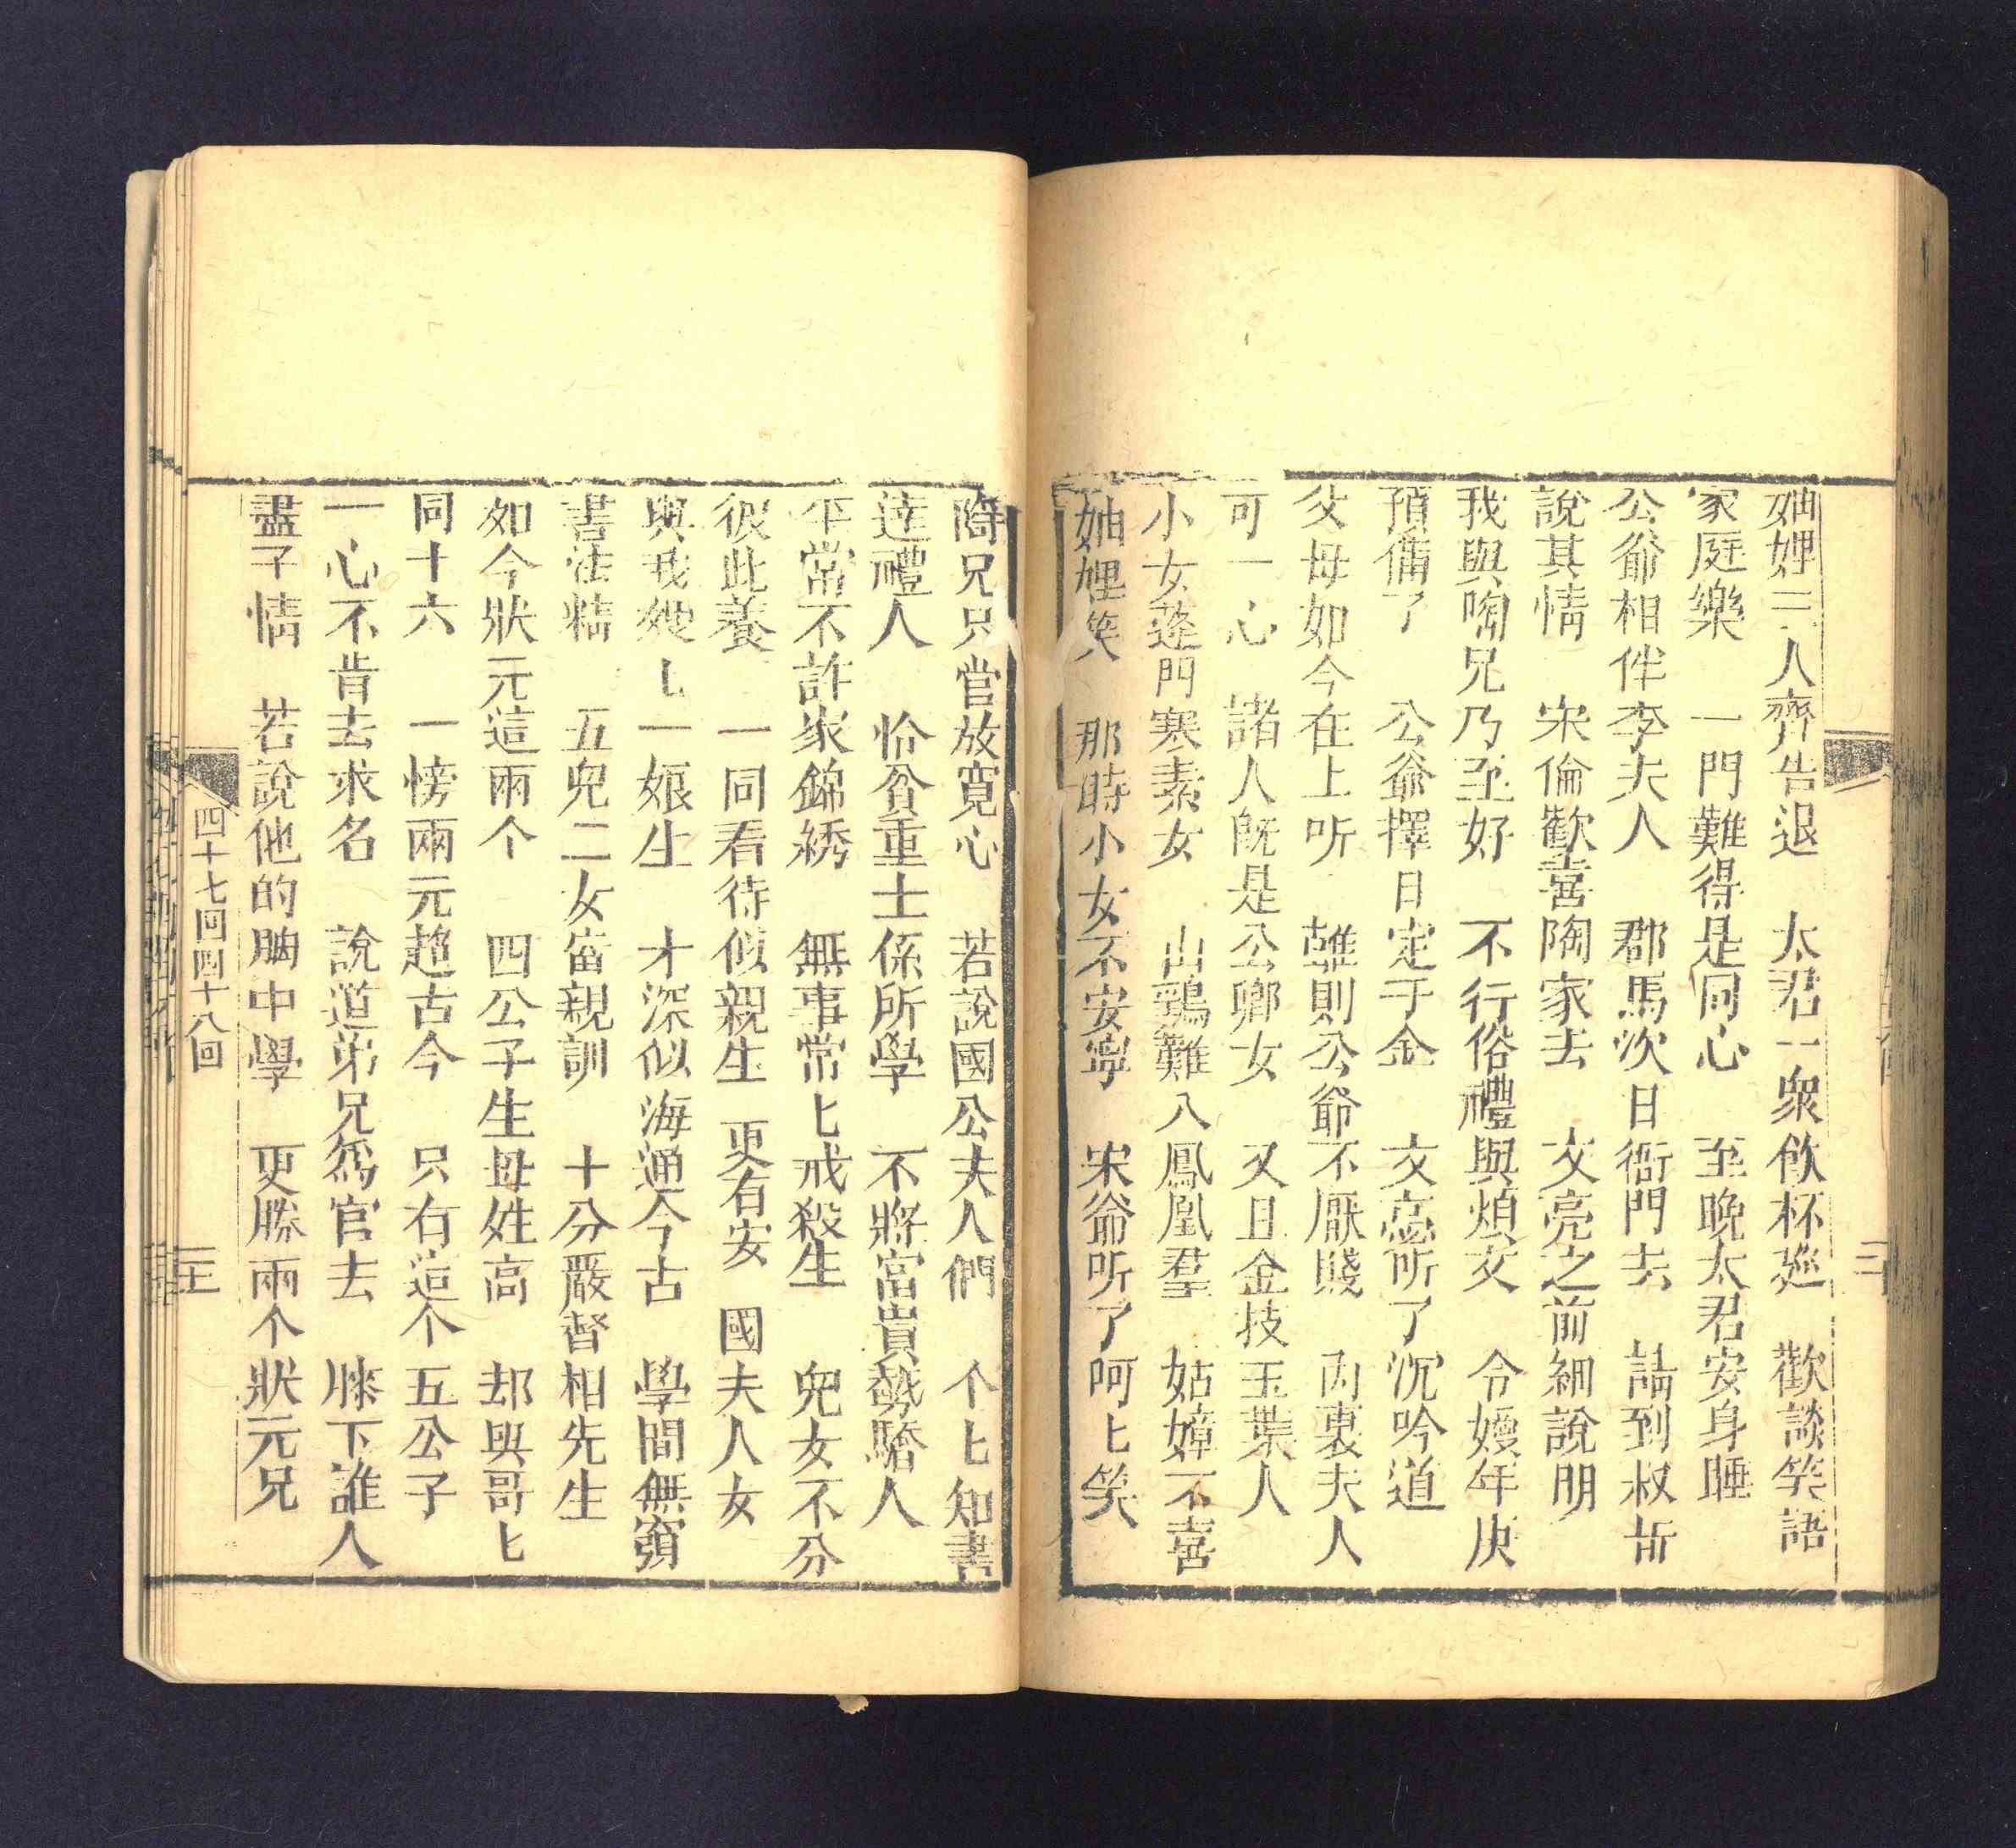 妯娌三人齊告退　太君一衆飲杯巡　歡談笑語
家庭樂　一門難得是同心　至晩太君安身睡
公爺相伴李夫人　郡馬次日衙門去　請到叔
說其情　宋倫歡喜陶家去　文亮之前細說明
我與陶兄乃至好　不行俗禮與煩文　令嫒年庚
預備了　公爺擇日定于金　文亮听了沉吟道
父母如今在上听　雖則公爺不厭賤　内裏夫人
可一心　諸人旣是公卿女　又且金技玉葉人
小女蓬門寒素女　山鷄難入鳳凰羣　姑嫜不喜
妯娌笑　那時小女不安寧　宋侖听了呵匕笑
陶兄只當放寬心　若說國公夫人們　个匕知書
達禮人　恰貧重士係所學　不將富貴勢驕人
平常不許家錦綉　無事常匕戒殺生　兒女不分
彼此養　一同看待似親生　更有安國夫人女
與我嫂匕一娘生　才深似海通今古　學問無窮
書法精　五兒二女當親訓　十分嚴督相先生
如今狀元這兩个　四公子生母姓高　却與哥匕
同十六　一傍兩元超古今　只有這个五公子
一心不肯去求名　說道弟兄爲官去　膝下誰人
盡子情　若說他的胸中學　更勝兩个狀元兄
四十七回四十八回